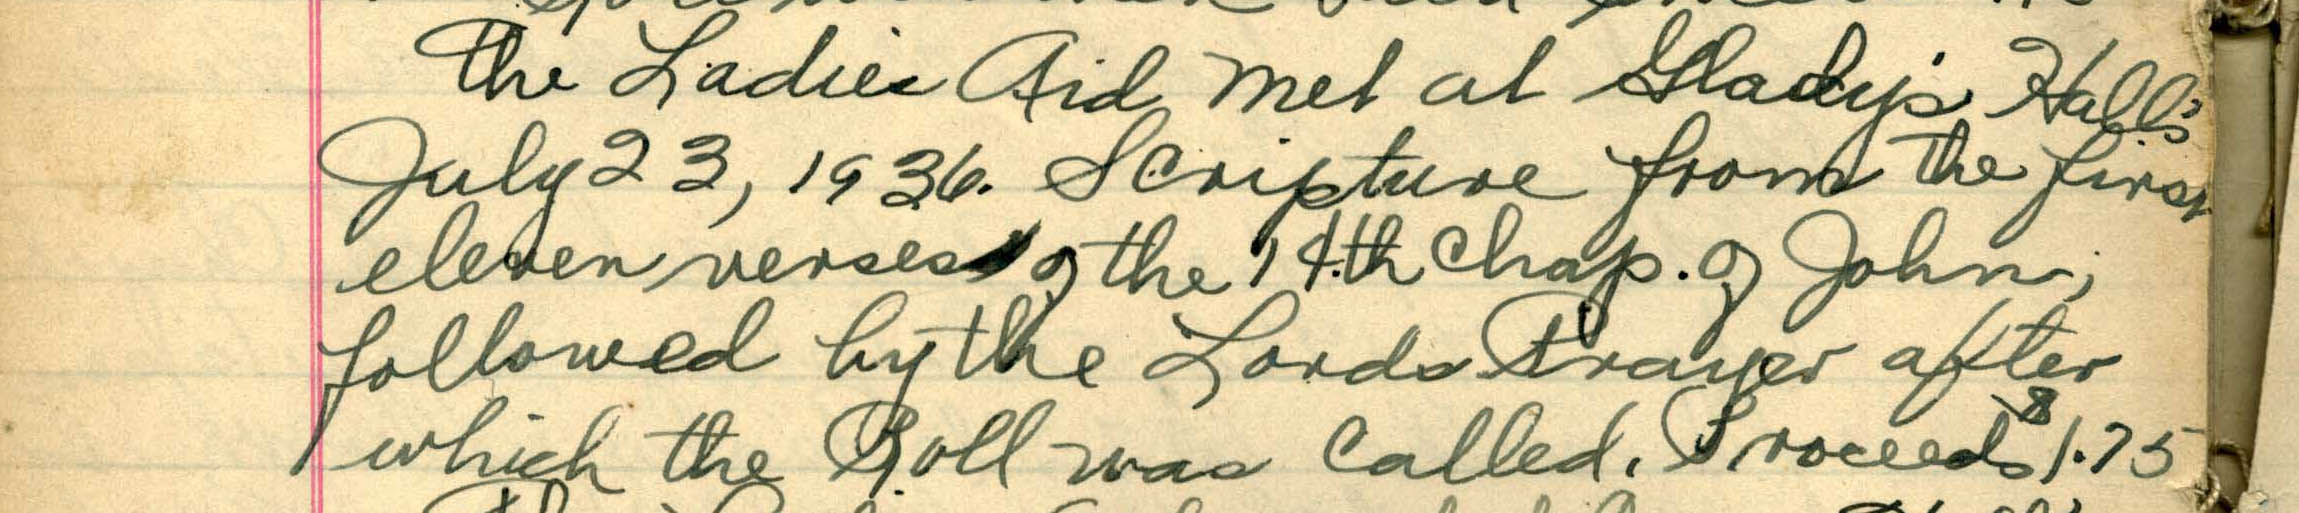 The Ladies Aid met at Gladys's Hall's
July 23, 1936. Scripture from the first
eleven verses of the 14th Chap. of John,
followed by the Lords Prayer after
which the Roll was called. Proceeds $1.75